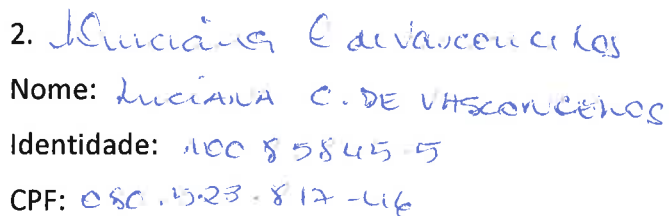 2. Luciana C de Vasconcelos
Nome: LUCIANA C. DE VASCONCELOS
Identidade: 10085845-5
CPF: 080.523.817-46